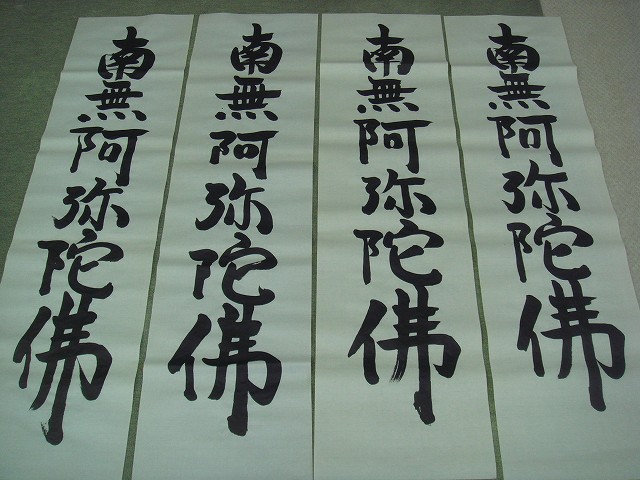 南無阿弥陀佛
南無阿弥陀佛
南無阿弥陀佛
南無阿弥陀佛